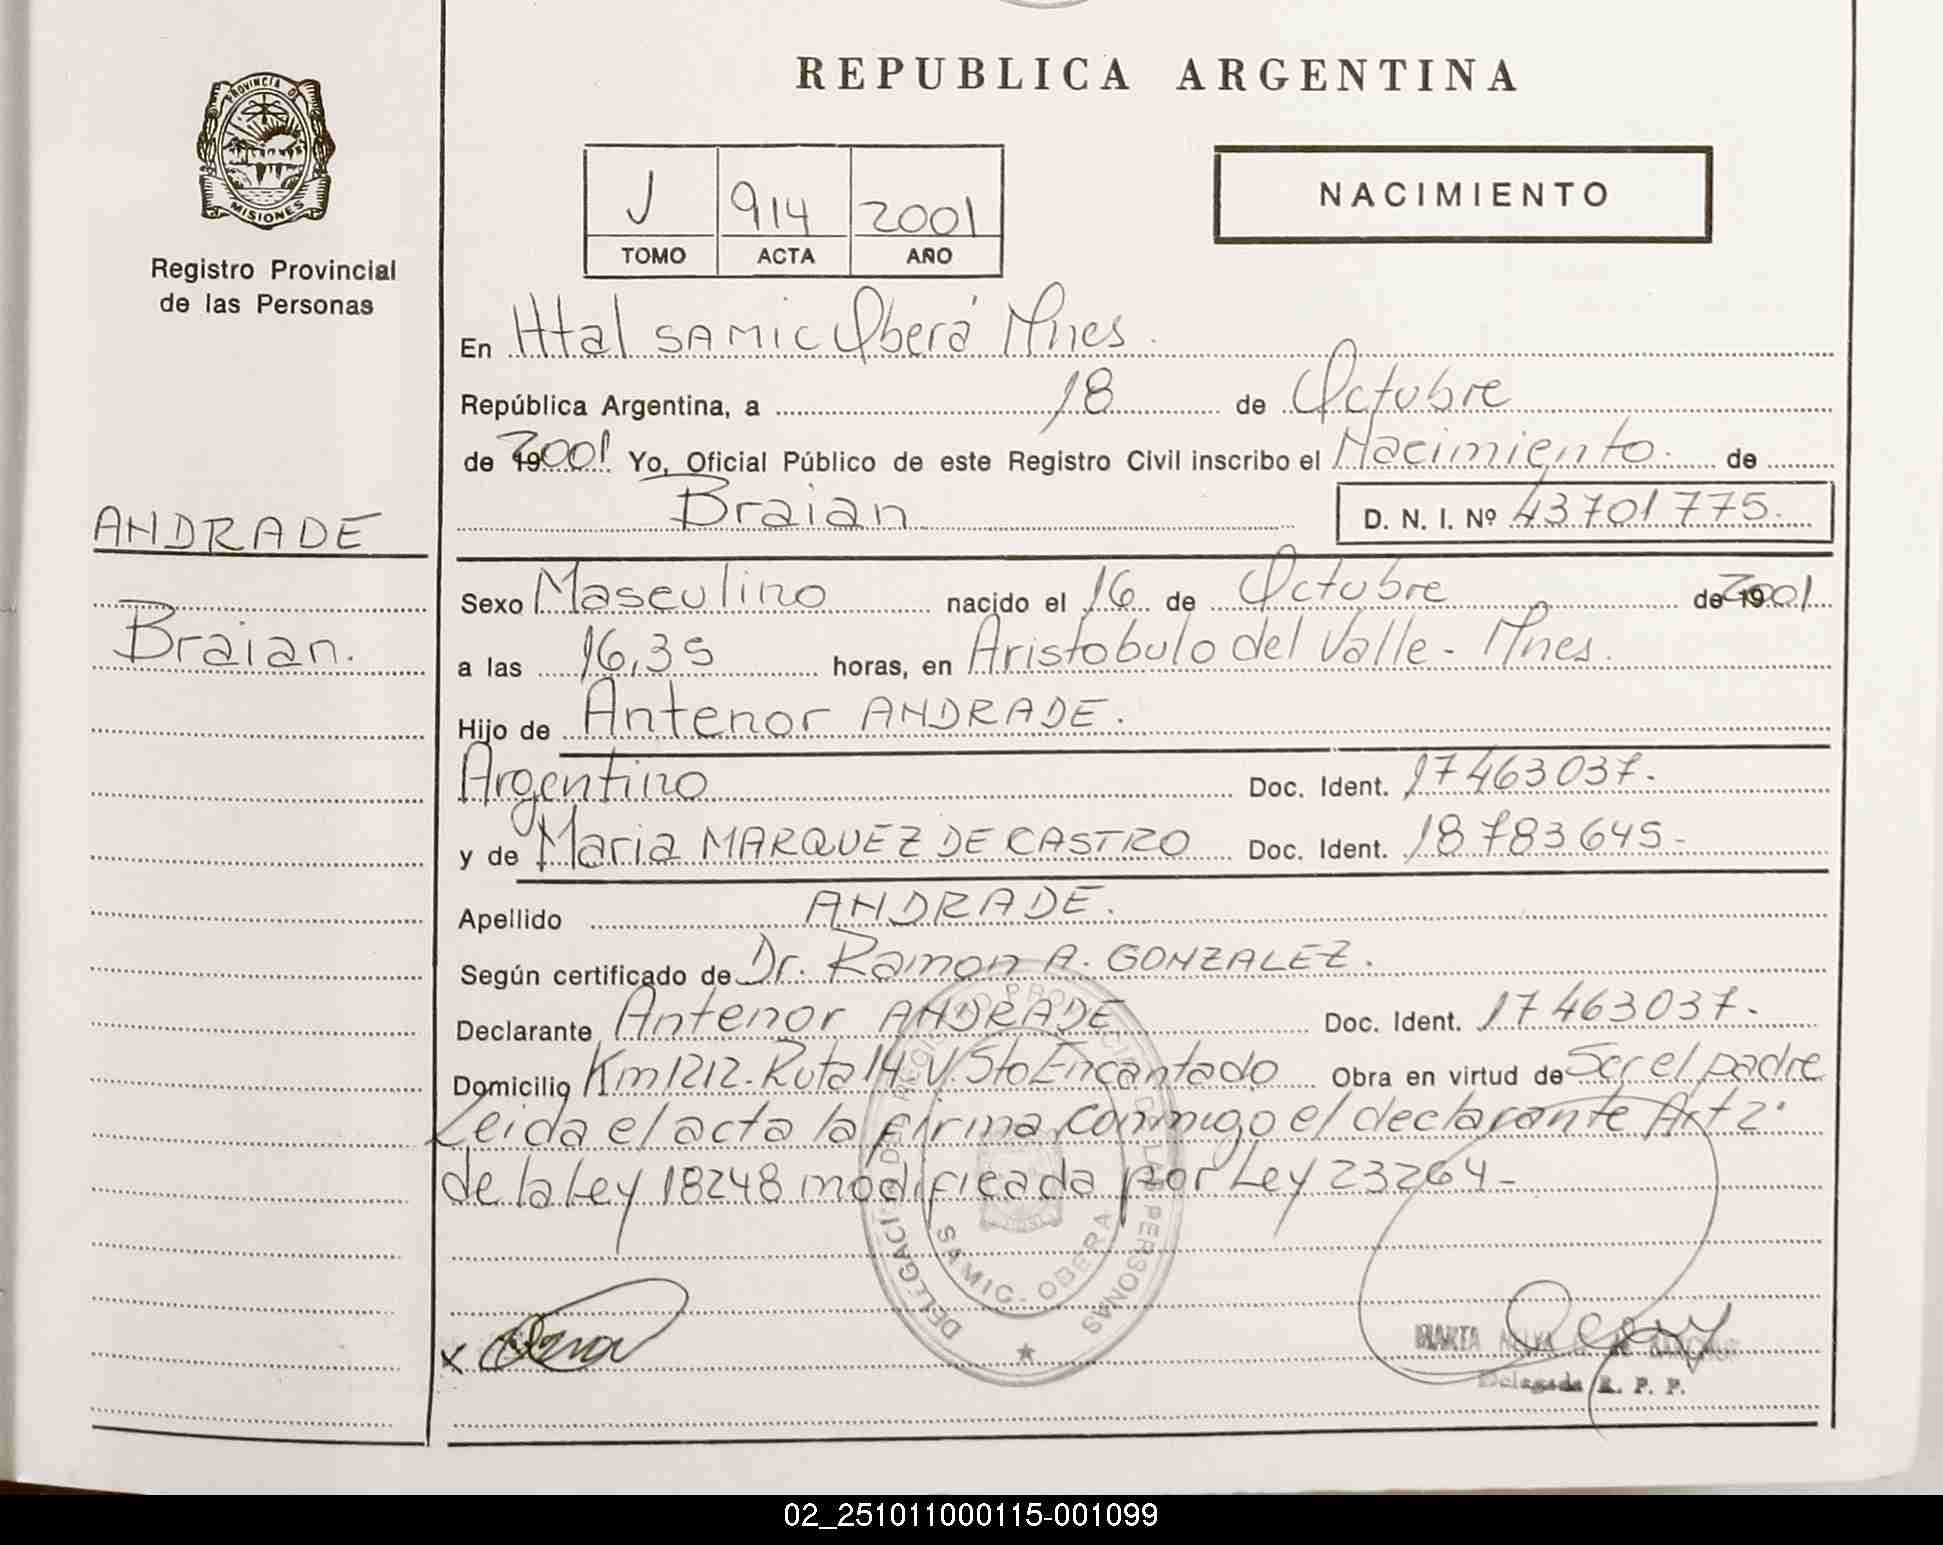 REPUBLICA ARGENTINA
PROVINCIA D
MISIONES
Registro Provincial
de las Personas
J 914 2001
TOMO ACTA AÑO
NACIMIENTO
En Htal SAMIC Oberá Mnes.
República Argentina, a 18 de Octubre
de 2001 Yo, Oficial Público de este Registro Civil inscribo el Nacimiento. de
Braian D. N. I. Nº 43701775.
ANDRADE
Braian.
Sexo Masculino nacido el 16 de Octubre de 2001
a las 16,35 horas, en Aristobulo del Valle - Mnes.
Hijo de Antenor ANDRADE.
Argentino Doc. Ident. 17463037.
y de Maria MARQUEZ DE CASTRO Doc. Ident. 18783645-
Apellido ANDRADE.
Según certificado de Dr. Ramon A. GONZALEZ.
Declarante Antenor ANDRADE Doc. Ident. 17463037.
Domicilio Km 1212. Ruta 14. V. Sto Encantado Obra en virtud de Ser el padre
Leida el acta la firma conmigo el declarante Art 2º
de la Ley 18248 modificada por Ley 23264-
SAMIC - OBERA
x
MARTA
Delegada R. P. P.
02_251011000115-001099